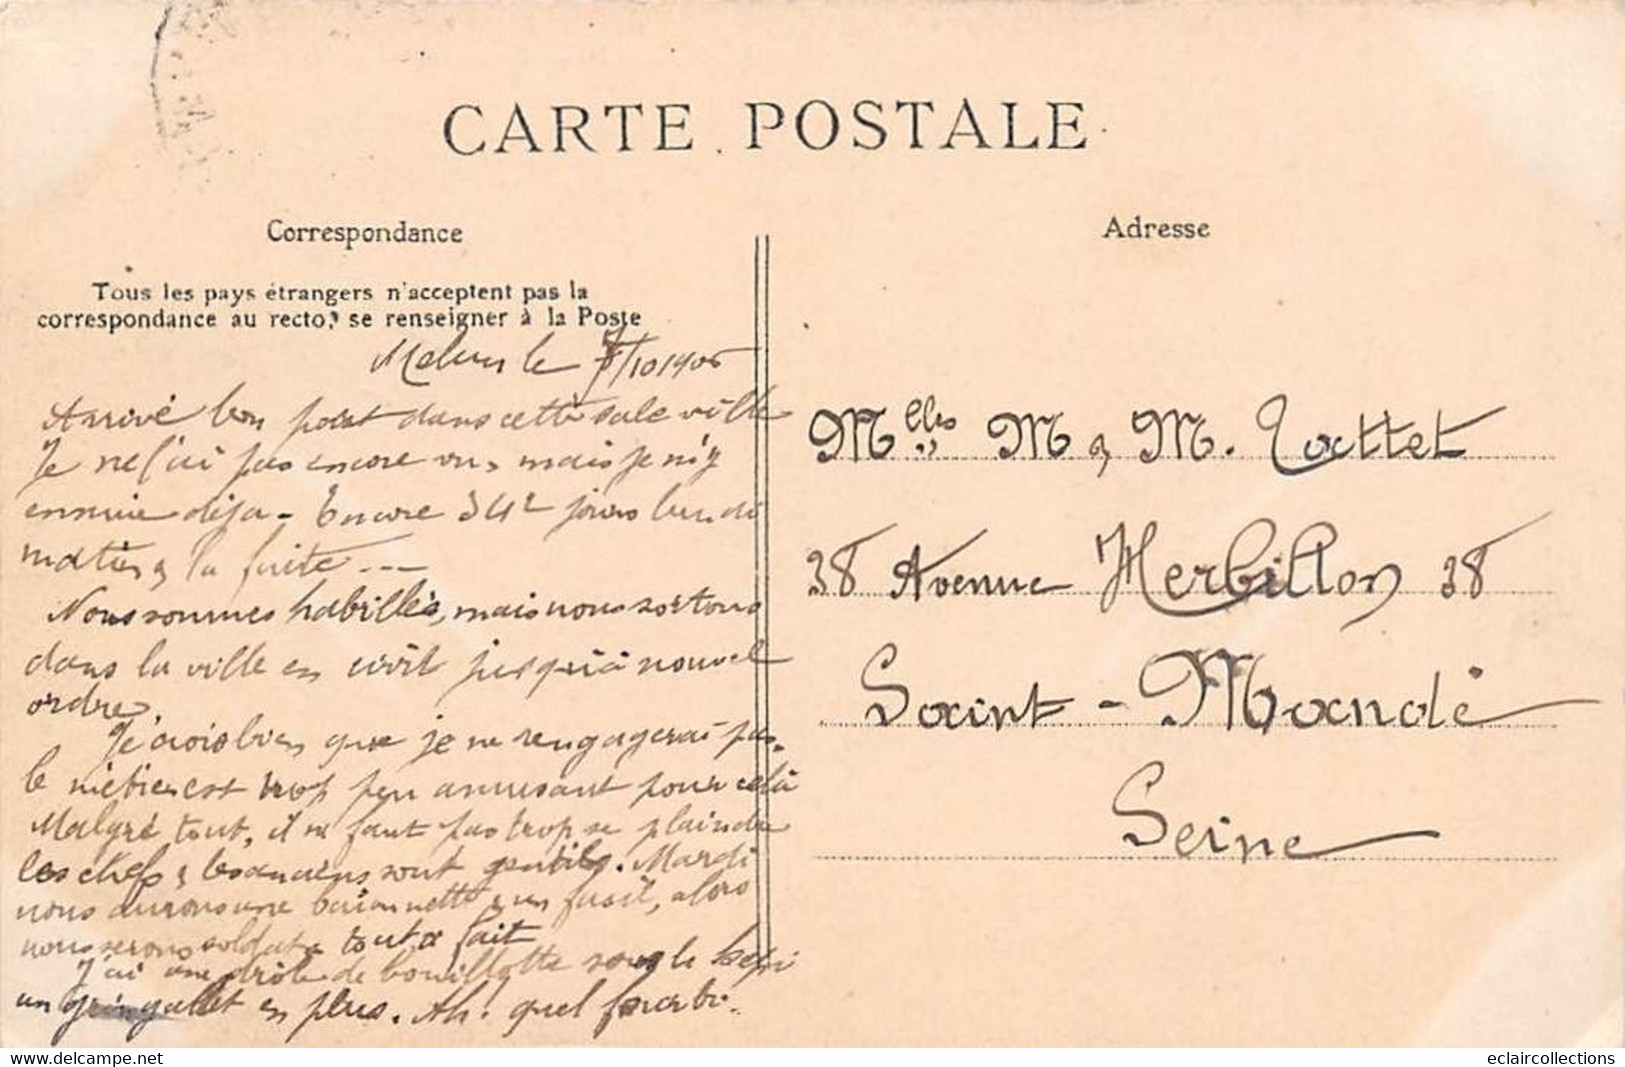 CARTE POSTALE
Correspondance
Tous les pays étrangers n'acceptent pas la
correspondance au recto, se renseigner à la Poste
Melun le 7/10 1906
Arrivé bon port dans cette sale ville
Je ne l'ai pas encore vu, mais je m'y
ennuie déjà - Encore jours lundi
matin & la fuite ---
Nous sommes habillés, mais nous sortons
dans la ville en civil jusqu'à nouvel
ordre.
Je crois bien que je ne rengagerai pas.
le métier est trop peu amusant pour celà
Malgré tout, il ne faut pas trop se plaindre
les chefs & les anciens sont gentils. Mardi
nous aurons une baionnette & un fusil, alors
nous serons soldats tout à fait
J'ai une drôle de bouillotte sous le képi
un gringallet en plus. Ah! quel fourbi.
Adresse
Melles M & M. Tattet
38 Avenue Herbillon 38
Saint-Mandé
Seine
delcampe.net
eclaircollections